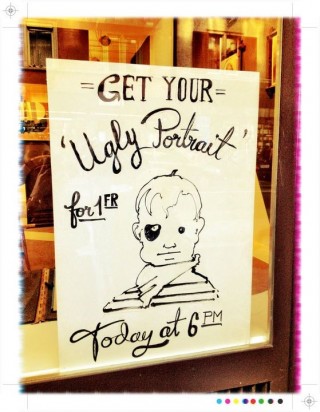 =GET YOUR=
'Ugly Portrait'
for 1 FR
Today at 6 PM